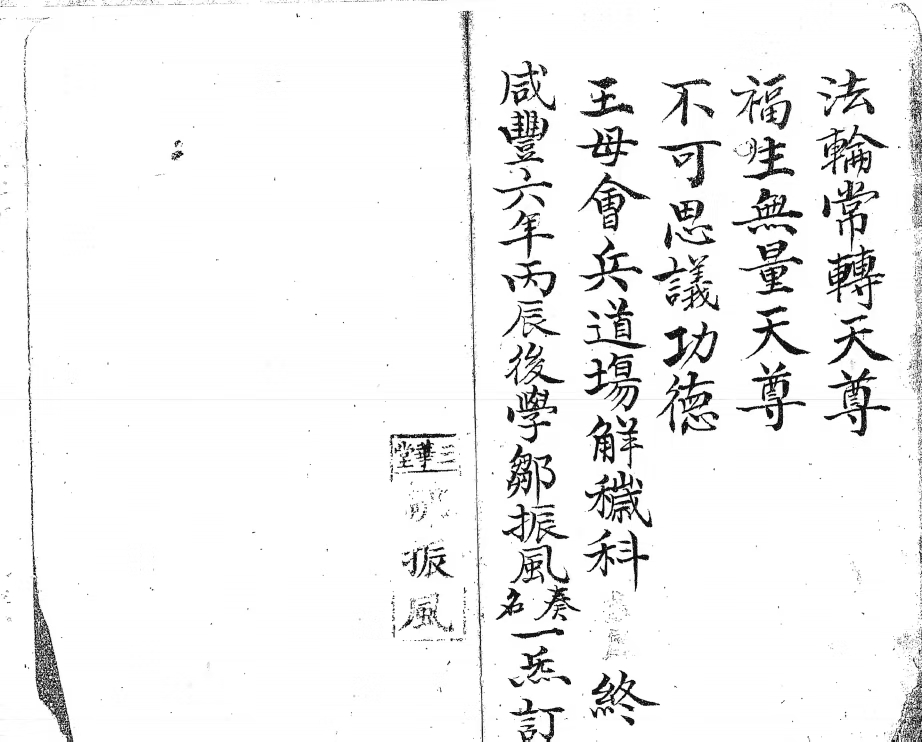 法輪常轉天尊
福生無量天尊
不可思議功德
王母會兵道場解穢科 終
咸豐六年丙辰後學鄒振風奏名一炁訂
三華堂
振風